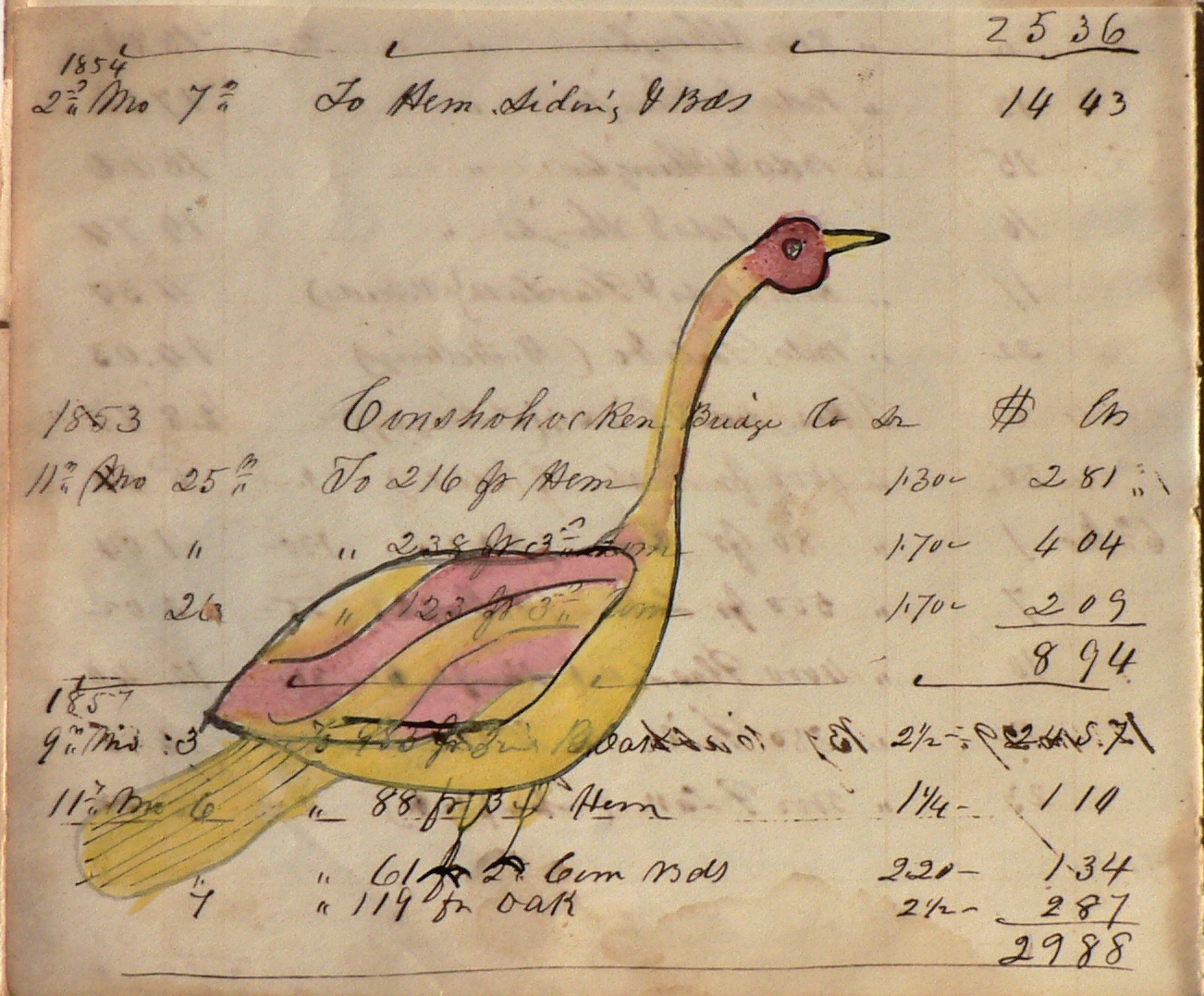 25 36
1854
2nd Mo 7th To Hem Siding & Bds 14 43
1853 Conshohocken Bridge Co Dr $ Cts
11th Mo 25th To 216 ft Hem 1.30 2 81
" " 238 ft 3rd Com 1.70 4 04
26 " 123 ft 3rd Com 1.70 2 09
8 94
1857
9th Mo 3 To ft 2½
11th Mo 6 " 88 ft Hem 1¼ 1 10
" " 61 ft 2nd Com Bds 2.20 1.34
7 " 119 ft Oak 2½ 2 87
29 88